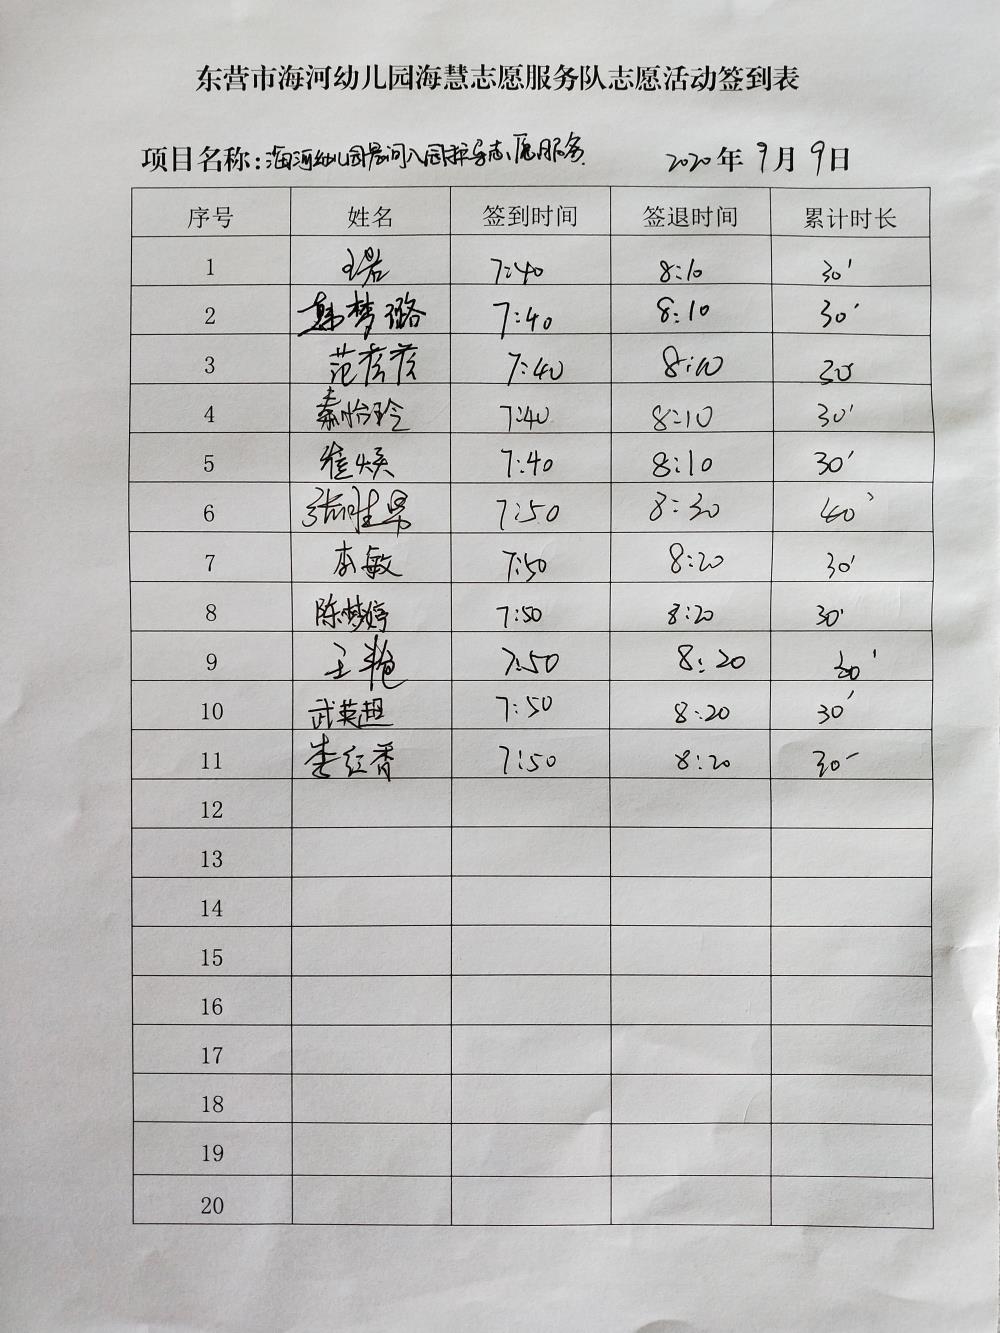 东营市海河幼儿园海慧志愿服务队志愿活动签到表
项目名称：海河幼儿园晨间入园引导志愿服务 2020年9月9日
序号 姓名 签到时间 签退时间 累计时长
1 王君 7:40 8:10 30'
2 韩梦璐 7:40 8:10 30'
3 范彦彦 7:40 8:10 30'
4 秦怡玲 7:40 8:10 30'
5 崔焕 7:40 8:10 30'
6 张胜男 7:50 8:30 40'
7 李敏 7:50 8:20 30'
8 陈梦婷 7:50 8:20 30'
9 王艳 7:50 8:20 30'
10 武英超 7:50 8:20 30'
11 李红香 7:50 8:20 30'
12
13
14
15
16
17
18
19
20